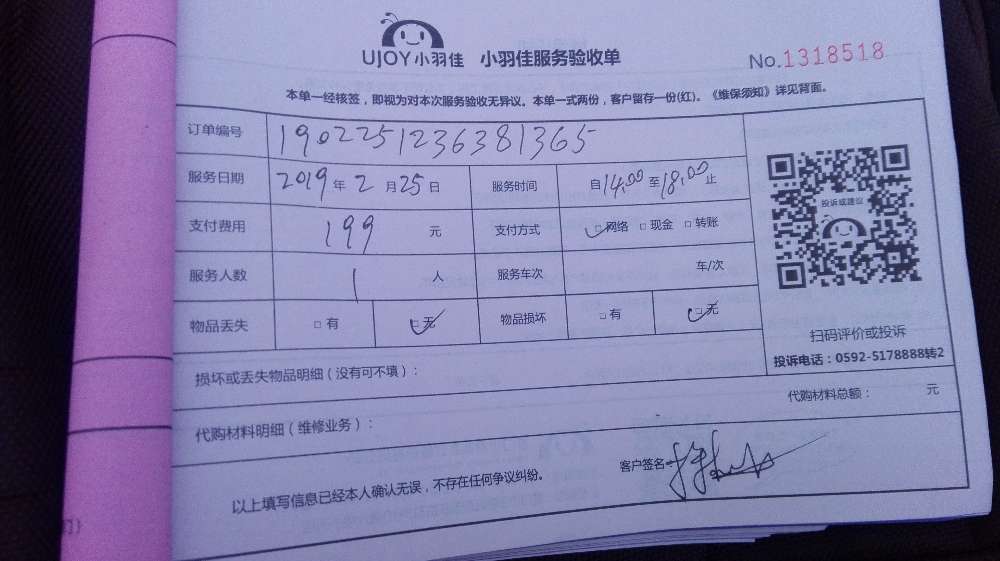 UJOY小羽佳 小羽佳服务验收单 No.1318518
本单一经核签，即视为对本次服务验收无异议。本单一式两份，客户留存一份(红)。《维保须知》详见背面。
订单编号 1902251236381365
服务日期 2019年2月25日 服务时间 自14:00至18:00止
支付费用 199元 支付方式 □网络 □现金 □转账
服务人数 1人 服务车次 车/次
物品丢失 □有 □无 物品损坏 □有 □无
投诉或建议
扫码评价或投诉
投诉电话：0592-5178888转2
损坏或丢失物品明细（没有可不填）：
代购材料明细（维修业务）： 代购材料总额： 元
以上填写信息已经本人确认无误，不存在任何争议纠纷。 客户签名